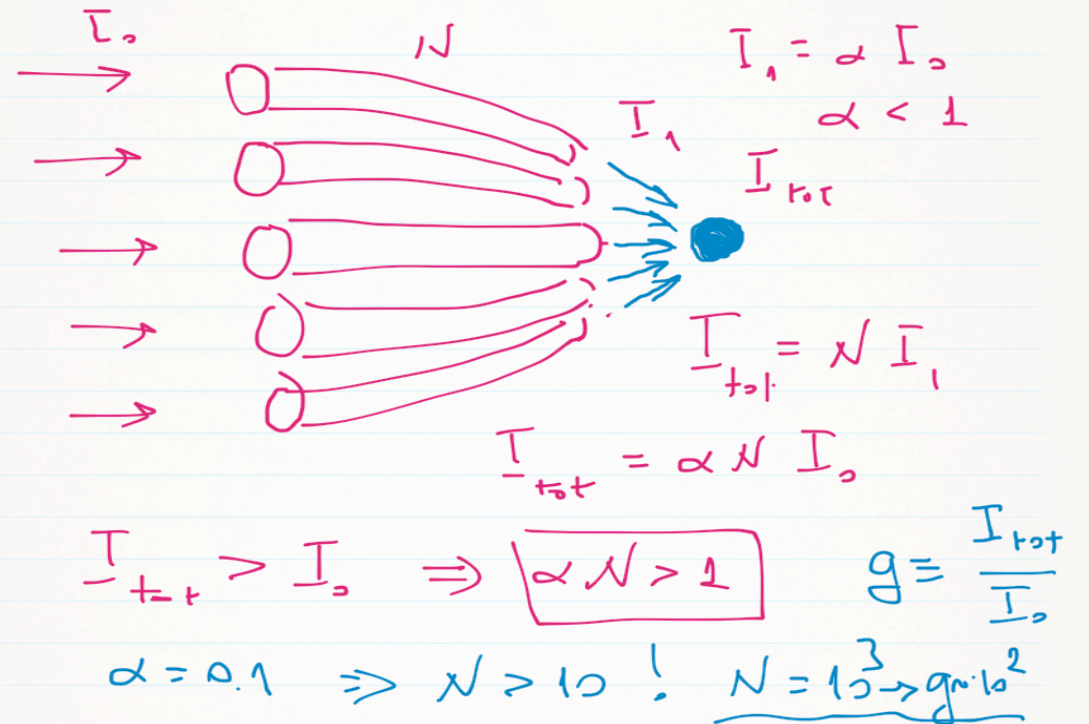 I₀
N
I₁ = α I₀
α < 1
I₁
I tot
I tot = N I₁
I tot = α N I₀
I tot > I₀ ⇒ α N > 1
g ≡ I tot / I₀
α = 0.1 ⇒ N > 10 ! N = 10³ → g ~ 10²